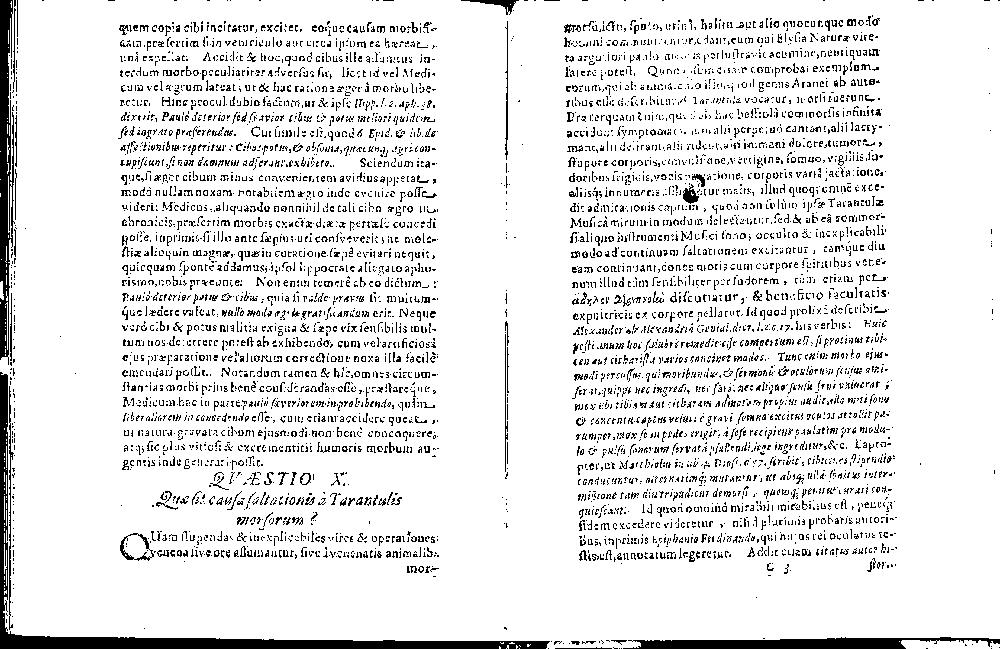 quem copia cibi incitatur, excitet, eoque causam morbissi-
cam, præsertim si in ventriculo aut circa ipsum ea hæreat,
unà expellat. Accidit & hoc, quod cibus ille assumtus in-
terdum morbo peculiariter adversus sit, licet id vel Medi-
cum vel ægrum lateat, ut & hac ratione æger à morbo libe-
retur. Hinc procul dubio factum, ut & ipse Hipp. l. 2. aph. 38.
dixerit, Paulò deterior sed suavior cibus & potus meliori quidem
sed ingrato præferendus. Cui simile est, quod 6 Epid. & lib. de
affectionibus repetitur: Cibos, potus, & obsonia, quæcunq, ægri con-
cupiscunt, si non damnum adferant, exhibeto. Sciendum ita-
que, si æger cibum minus convenientem avidius appetat,
modò nullam noxam notabilem ægro inde evenire posse
viderit Medicus, aliquando nonnihil de tali cibo ægro in
chronicis, præsertim morbis exactæ diætæ pertæso concedi
posse, inprimis si illo ante sæpius uti consveverit; ne mole-
stiæ alioquin magnæ, quæ in curatione sæpè evitari nequit,
quicquam spontè addamus, ipso Hippocrate allegato apho-
rismo, nobis præeunte. Non enim temerè ab eo dictum:
Paulò deterior potus & cibus, quia si valde pravus sit multum-
que lædere valeat, nullo modo ægris gratificandum erit. Neque
verò cibi & potus malitia exigua & sæpe vix sensibilis mul-
tum nos deterrere potest ab exhibendo, cum vel artificiosâ
ejus præparatione vel aliorum correctione noxa illa facilè
emendari possit. Notandum tamen & hîc, omnes circum-
stantias morbi prius benè considerandas esse, præstareque,
Medicum hac in parte paulò severiorem in prohibendo, quàm
liberaliorem in concedendo esse, cum etiam accidere queat,
ut natura gravata cibum ejusmodi non benè concoquere,
atq; sic plus vitiosi & excrementitii humoris morbum au-
gentis inde generari possit.
QVÆSTIO X.
Quæ sit causa saltationis à Tarantulis
morsorum?
QUam stupendas & inexplicabiles vires & operationes
venena sive ore assumantur, sive à venenatis animalib.
mor-
morsu, ictu, sputo, urinâ, halitu aut alio quocunque modo
homini communicentur, edant, eum qui Elysia Naturæ vire-
ta argutiori paulò mentis perlustravit acumine, neutiquam
latere potest. Quod ipsum etiam comprobat exemplum
eorum, qui ab animalculo illo, quod genus Aranei ab auto-
ribus esse describitur, & Tarantula vocatur, morsi fuerunt.
Præterquam enim, quod eis hac bestiolâ commorsis infinita
accidunt symptomata, dum alii perpetuò cantant, alii lacry-
mant, alii delirant, alii rident, alii immani dolore, tumore,
stupore corporis, convulsione, vertigine, somno, vigiliis, su-
doribus frigidis, vocis privatione, corporis variâ jactatione,
aliisq; innumeris affliguntur malis, illud quoq; omnem exce-
dit admirationis captum, quod non solùm ipsæ Tarantulæ
Musicâ mirum in modum delectentur, sed & ab eâ commor-
si aliquo instrumenti Musici sono, occulto & inexplicabili
modo ad continuam saltationem excitantur, eamque diu
eam continuant, donec motis cum corpore spiritibus vene-
num illud tùm sensibiliter per sudorem, tùm etiam per
ἄδηλον διαπνοὴν discutiatur, & beneficio facultatis
expultricis ex corpore pellatur. Id quod prolixè describit
Alexander ab Alexandro Genial. dier. l. 2. c. 17. his verbis: Huic
pesti unum hoc salubre remedii esse compertum est, si protinus tibi-
cen aut citharista varios concinat modos. Tunc enim morbo ejus-
modi percussus, qui moribundus, & sermonis & oculorum sensu ami-
serat, quippe nec ingredi, nec fari, nec aliquo sensu frui valuerat;
mox ubi tibiam aut citharam admotam propius audit, illo miti sono
& concentu captus veluti è gravi somno excitus oculos attollit pa-
rumper, mox se in pedes erigit, à sese recipiens paulatim pro modu-
lo & pulsu sonorum servatâ psallendi lege ingreditur, &c. Eapro-
pter, ut Matthiolus in lib. 2. Diosc. c. 57. scribit, tibicines stipendio
conducuntur, alternatimq; mutantur, ut absq; ullâ sonitus inter-
missione tam diu tripudient demorsi, quousq; penitus curati con-
quiescant. Id quod omninò mirabili mirabilius est, penesq;
fidem excedere videretur, nisi à plurimis probatis autori-
bus, inprimis Epiphanio Ferdinando, qui hujus rei oculatus te-
stis est, annotatum legeretur. Addit etiam citatus autor hi-
G 3 stor-